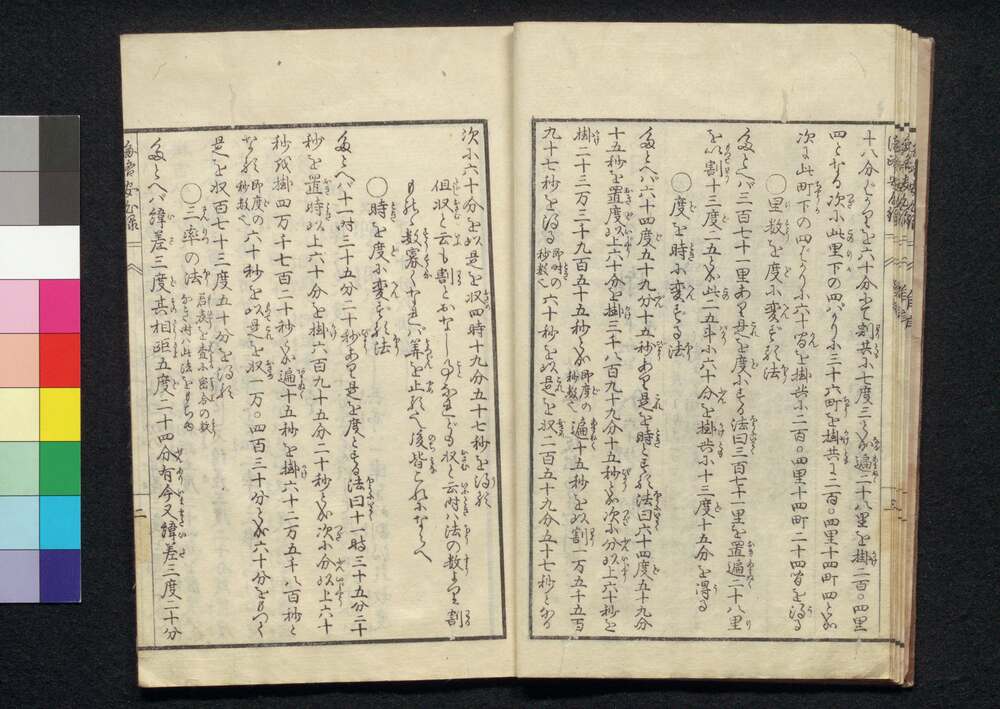 十八分どなりを六十分にて割共に七度三となる遍二十八里を掛二百〇四里
四となる次に此里下の四バかりに三十六町を掛共に二百〇四里十四町四となる
次に此町下の四ばかりに六十間を掛共に二百〇四里十四町二十四間を得る
〇里数を度に変ずる法
たとへバ三百七十一里あり是を度にする法曰三百七十一里を置遍二十八里
を以割十三度二五となる此二五斗に六十分を掛共に十三度十五分を得る
たとへバ六十四度五十九分十五秒あり是を時とする法曰六十四度五十九分
十五秒を置度以上六十分を掛三千八百九十九分十五秒となる次に分以上六十秒を
掛二十三万三千九百五十五秒となる即度の秒数也遍十五秒を以割一万五千五百
九十七秒を得る即時の秒数也六十秒を以是を収二百五十九分五十七秒となる
〇度を時に変ずる法
次に六十分を以是を収四時十九分五十七秒を得る
但収と云も割とかなじ事なれども収と云時ハ法の数より割
もの数寡くなれバ算を止る也後皆これにならへ
〇時を度に変ずる法
たとへバ十一時三十五分二十秒あり是を度とする法曰十一時三十五分二十
秒を置時以上六十分を掛六百九十五分二十秒となる次に分以上六十
秒を掛四万千七百二十秒となる遍十五秒を掛六十二万五千八百秒と
なる即度の秒数也六十秒を以是を収一万〇四百三十分となる六十分をもつて
是を収百七十三度五十分を得る
〇三率の法
たとへバ緯差三度其相距五度二十四分有今又緯差三度二十分